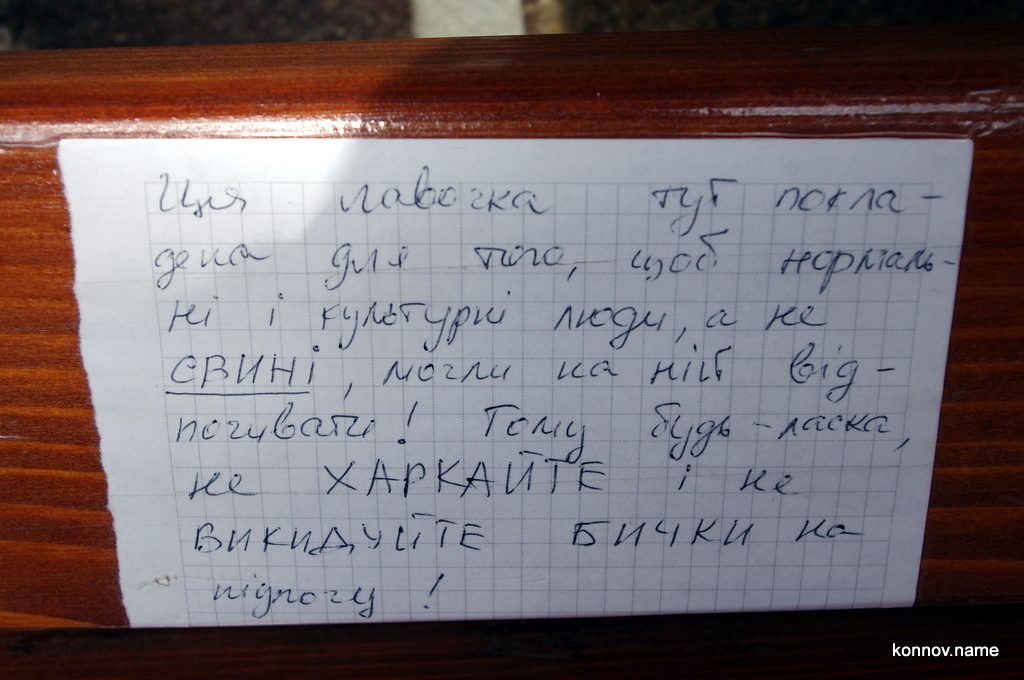 Ця лавочка тут покла-
дена для того, щоб нормаль-
ні і культурні люди, а не
СВИНІ, могли на ній від-
почивати! Тому будь-ласка,
не ХАРКАЙТЕ і не
ВИКИДУЙТЕ БИЧКИ на
підлогу!
konnov.name